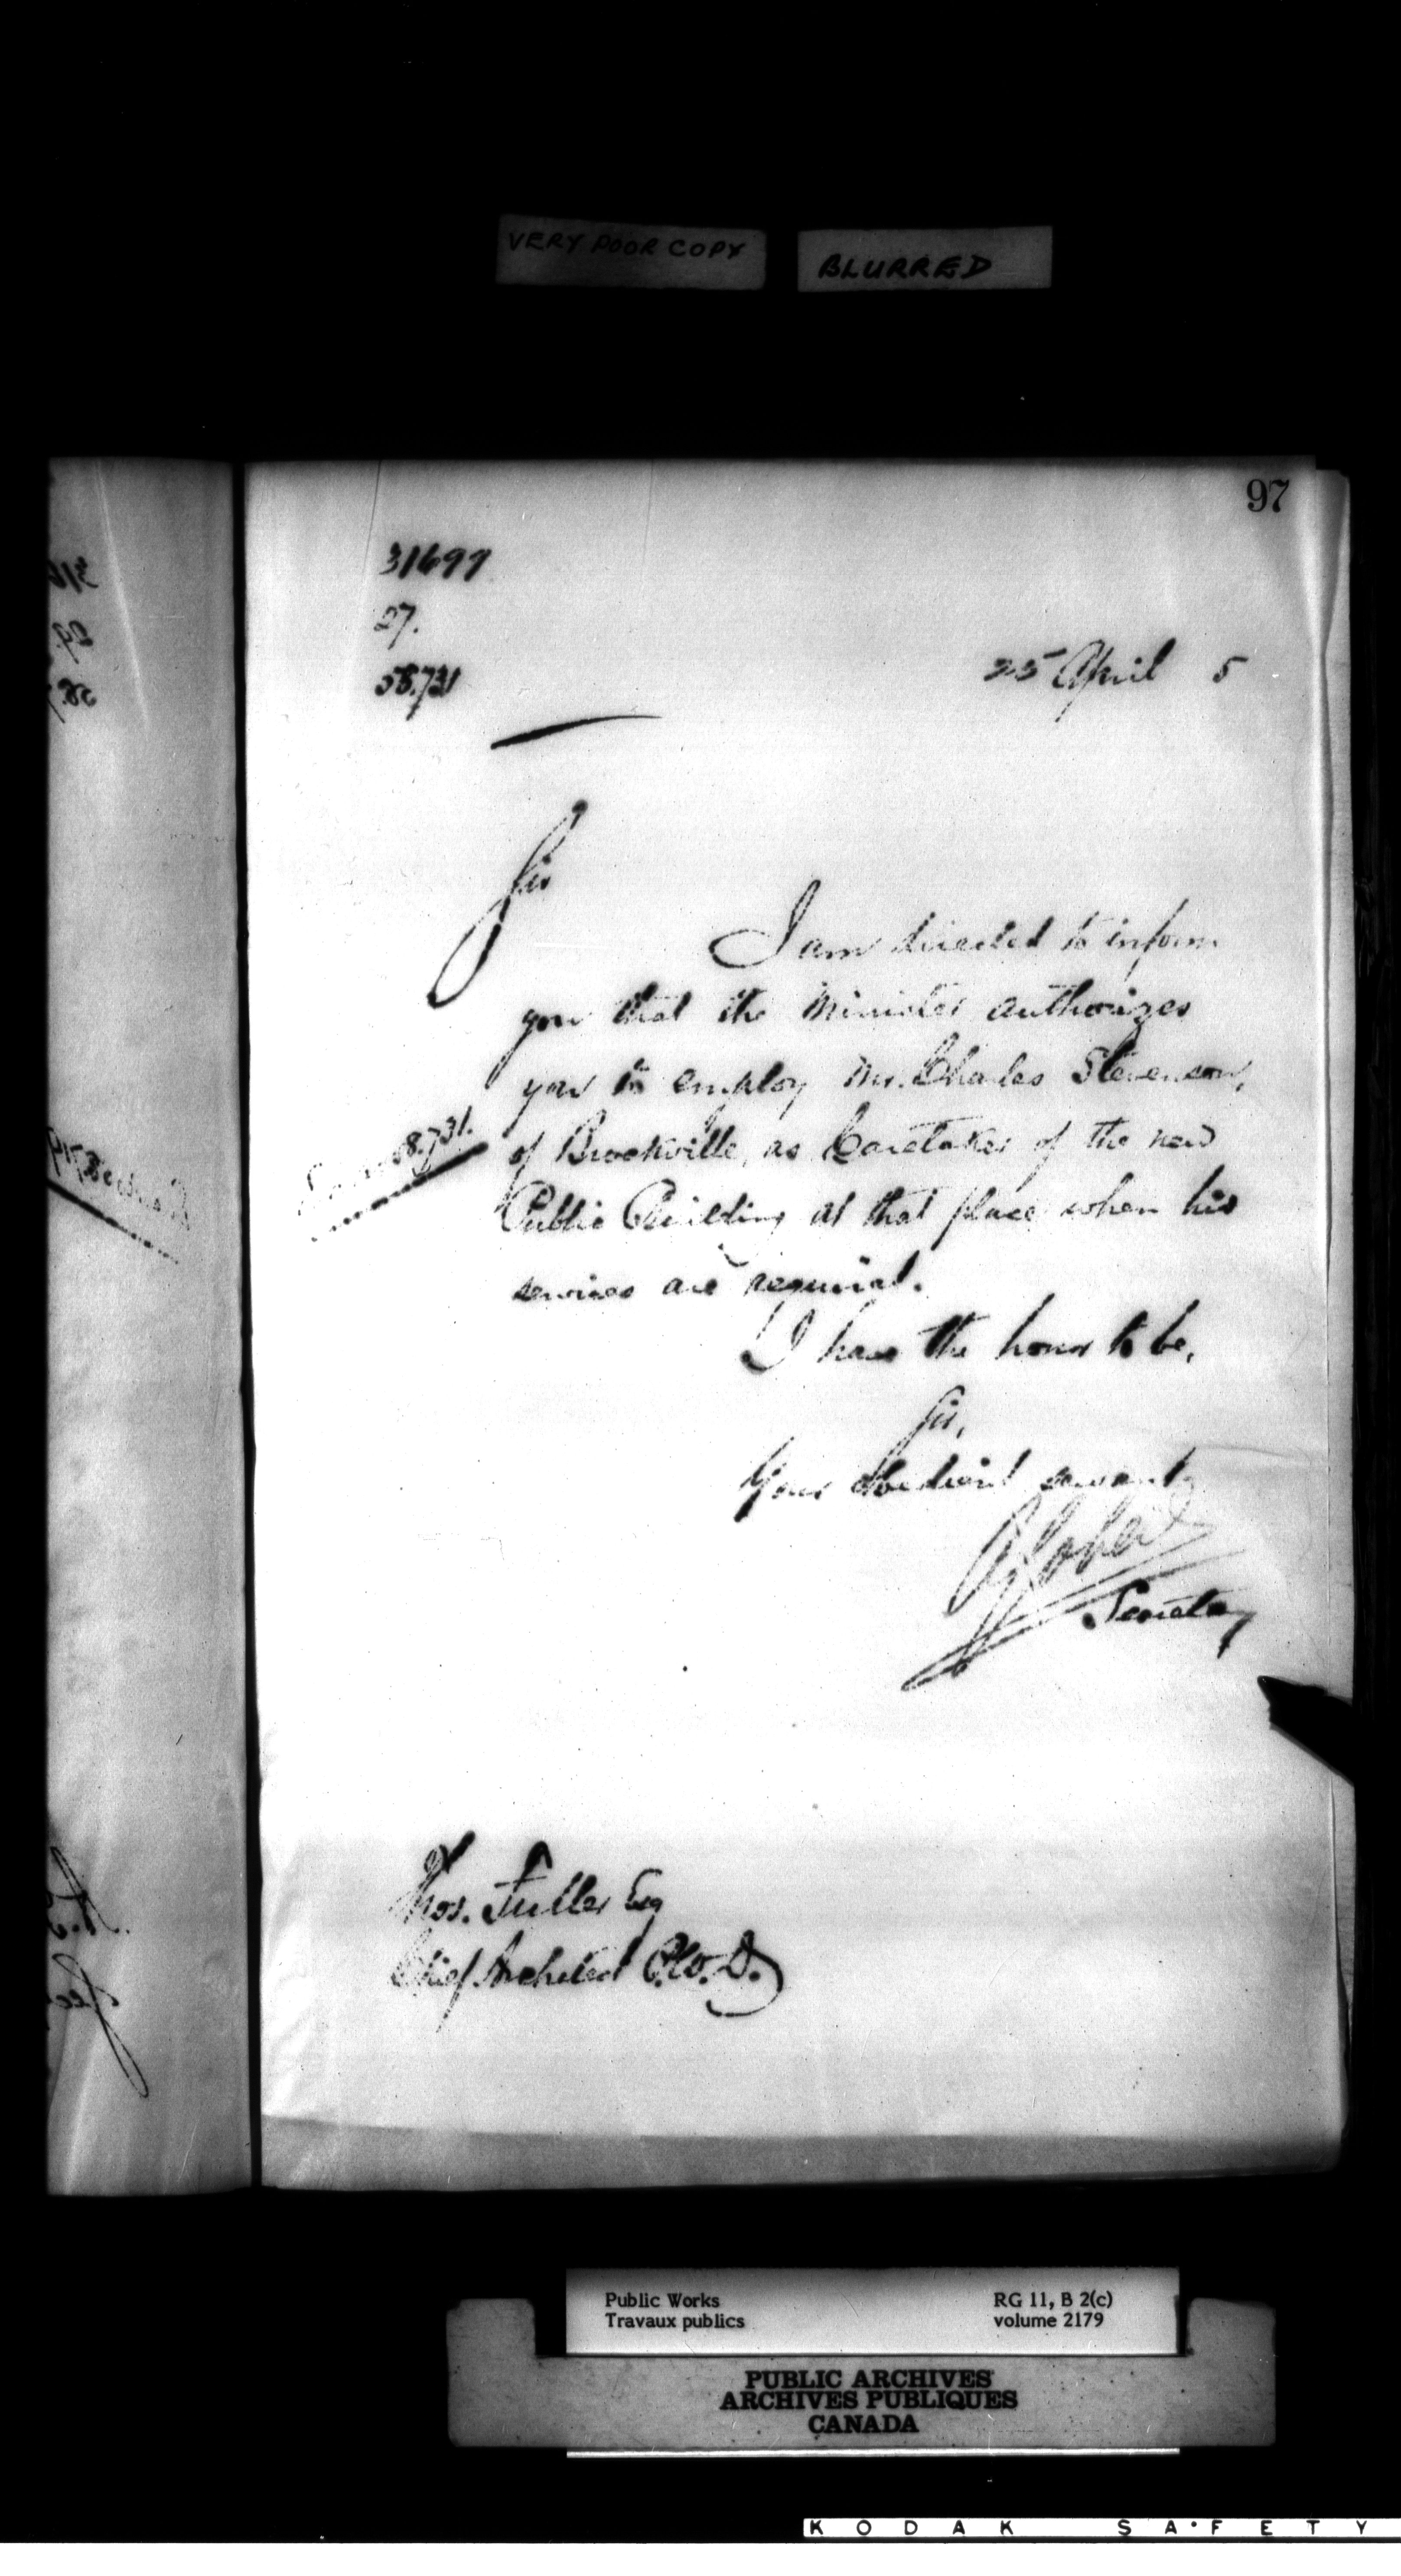 VERY POOR COPY
BLURRED
97
31699
27.
58731
25 April 5
Sir
I am directed to inform
you that the Minister authorizes
you to employ Mr. Charles Stevenson,
58731.
of Brockville, as Caretaker of the new
Public Building at that place when his
services are required.
I have the honor to be,
Sir,
Your obedient servant
Secretary
Thos. Fuller Esq
Chief Architect P.W.D.
Public Works
Travaux publics
RG 11, B 2(c)
volume 2179
PUBLIC ARCHIVES
ARCHIVES PUBLIQUES
CANADA
KODAK SAFETY